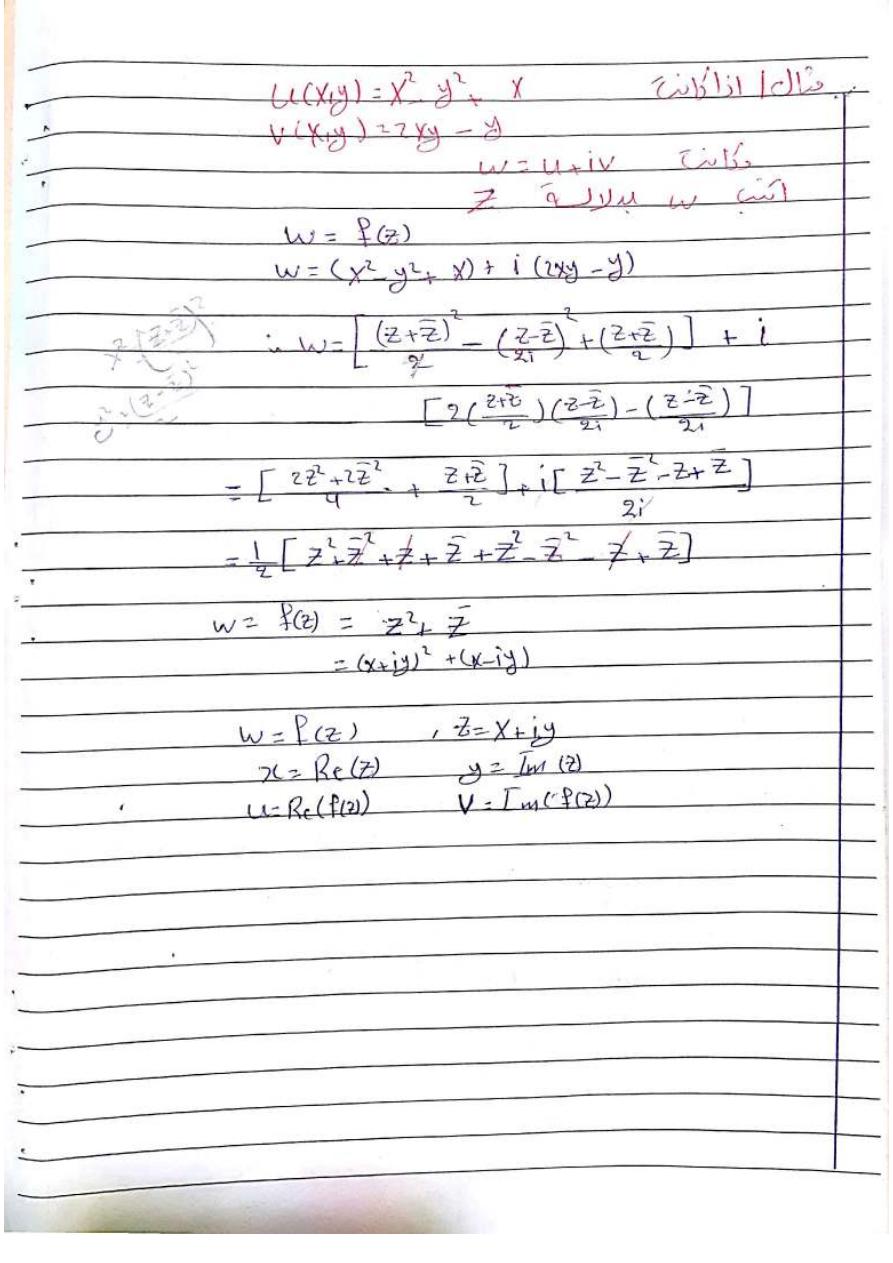 مثال / اذا كانت u(x,y) = x² - y² + x
v(x,y) = 2xy - y
وكانت w = u + iv
اكتب w بدلالة z
w = f(z)
w = (x² - y² + x) + i (2xy - y)
∴ w = [ (z+z̄)²/2 - (z-z̄/2i)² + (z+z̄/2) ] + i
[ 2(z+z̄/2)(z-z̄/2i) - (z-z̄/2i) ]
= [ 2z²+2z̄²/4 + z+z̄/2 ] + i [ z² - z̄² - z + z̄/2i ]
= 1/2 [ z² + z̄² + z + z̄ + z² - z̄² - z + z̄ ]
w = f(z) = z² + z̄
= (x+iy)² + (x-iy)
w = f(z) , z = x + iy
x = Re(z) y = Im(z)
u = Re(f(z)) v = Im(f(z))